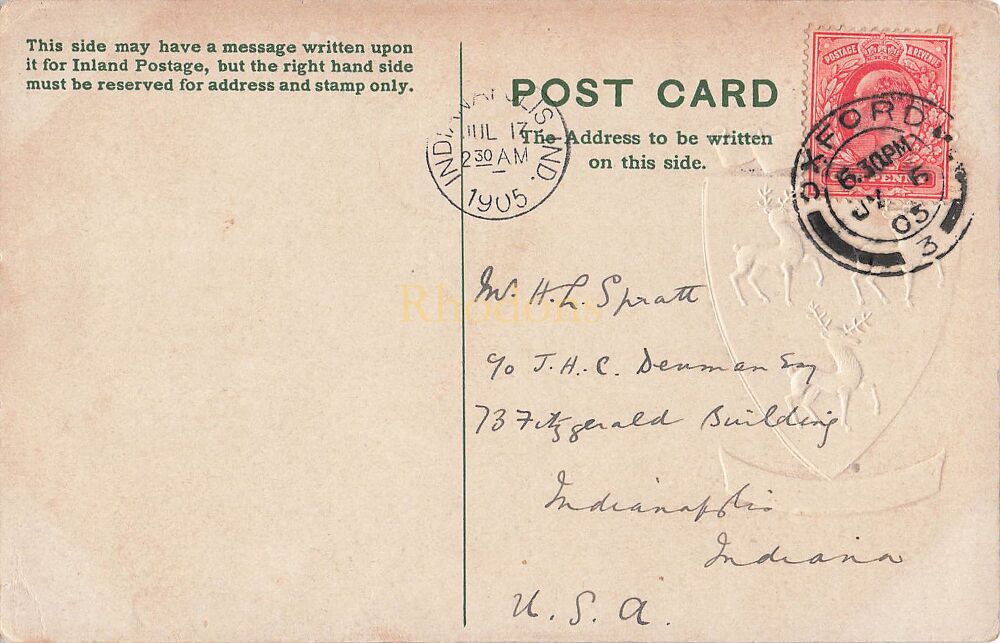 This side may have a message written upon
it for Inland Postage, but the right hand side
must be reserved for address and stamp only.
POST CARD
The Address to be written
on this side.
POSTAGE & REVENUE
PENNY
OXFORD
6.30PM
JY 6
05
3
INDIANAPOLIS IND.
JUL 17
2 30 AM
1905
Mr. H. L. Spratt
c/o J. H. C. Denman Esq
73 Fitzgerald Building
Indianapolis
Indiana
U. S. A.
Rhodons